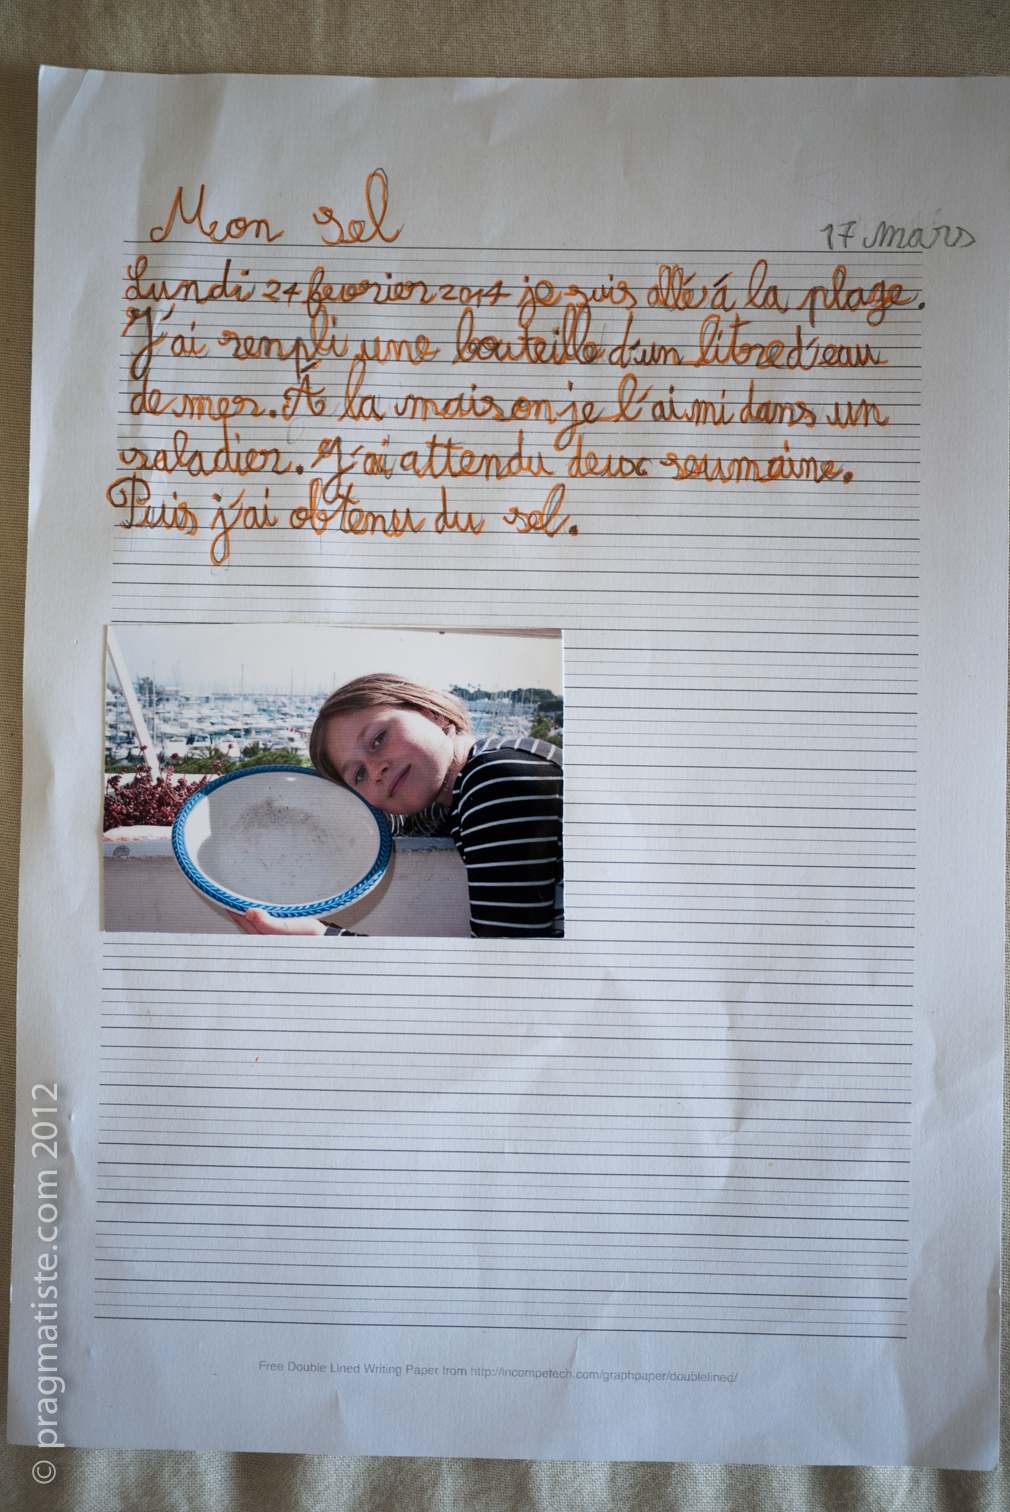 Mon sel
17 mars
Lundi 24 fevrier 2014 je suis allé à la plage.
J'ai rempli une bouteille d'un litre d'eau
de mer. À la maison je l'ai mi dans un
saladier. J'ai attendu deux seumaine.
Puis j'ai obtenu du sel.
Free Double Lined Writing Paper from http://incompetech.com/graphpaper/doublelined/
© pragmatiste.com 2012